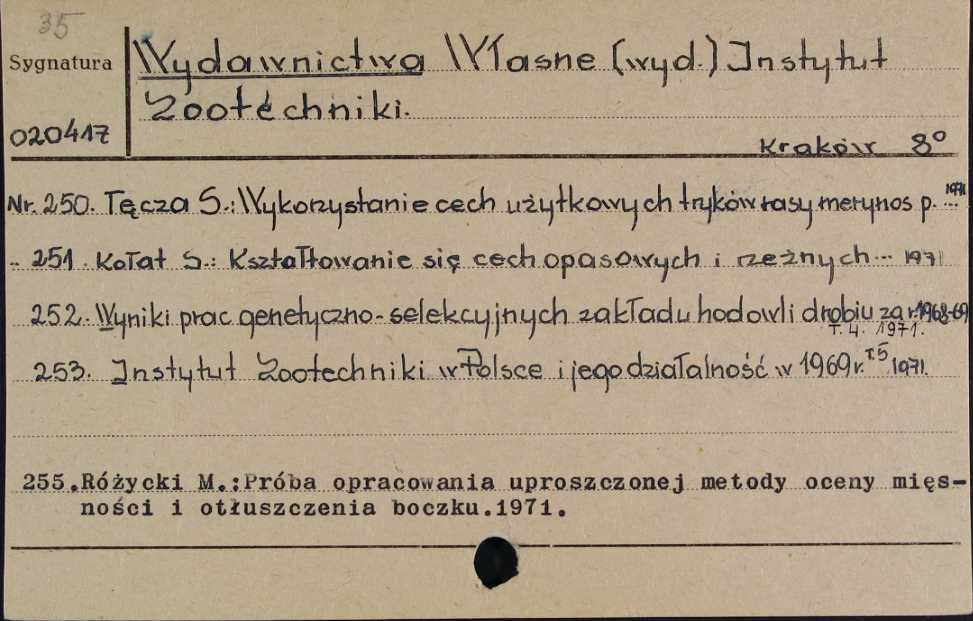 35
Sygnatura
Wydawnictwa Własne (wyd.) Instytut
Zootechniki.
020417
Kraków 8°
Nr. 250. Tęcza S.: Wykorzystanie cech użytkowych tryków rasy merynos p. ... 1971
.. 251. Kołat S.: Kształtowanie się cech opasowych i rzeżnych... 1971
252. Wyniki prac genetyczno-selekcyjnych zakładu hodowli drobiu za r. 1968-69
T. 4. 1971.
253. Instytut Zootechniki w Polsce i jego działalność w 1969 r. T. 5 1971.
255.Różycki M.:Próba opracowania uproszczonej metody oceny mięs-
ności i otłuszczenia boczku.1971.